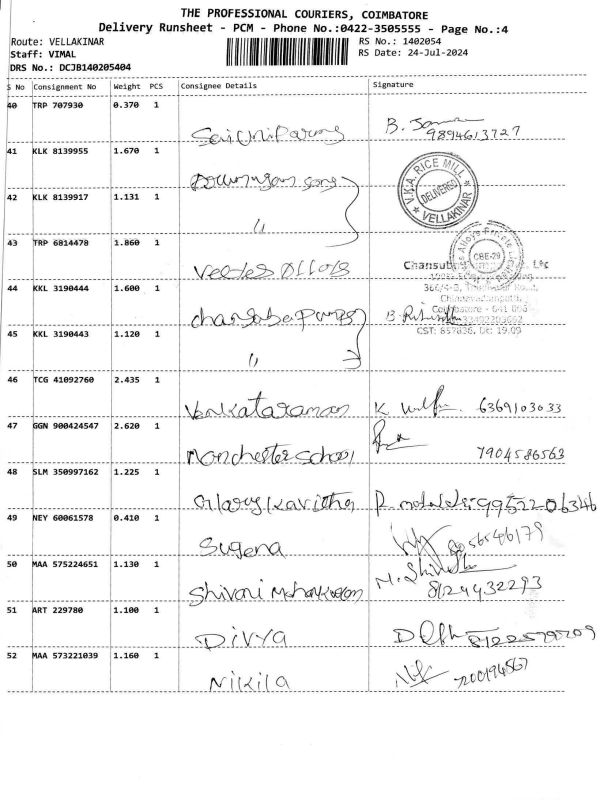 THE PROFESSIONAL COURIERS, COIMBATORE
Delivery Runsheet - PCM - Phone No.:0422-3505555 - Page No.:4
Route: VELLAKINAR
RS No.: 1402054
Staff: VIMAL
RS Date: 24-Jul-2024
DRS No.: DCJB140205404
S No Consignment No Weight PCS Consignee Details Signature
40 TRP 707930 0.370 1
B.
9894613727
41 KLK 8139955 1.670 1
V.K.A. RICE MILL
DELIVERED
VELLAKINAR
42 KLK 8139917 1.131 1
"
43 TRP 6814478 1.860 1
CBE-29
44 KKL 3190444 1.600 1
366/4-B,
Chinnavedampatti,
Coimbatore - 641 006
45 KKL 3190443 1.120 1
"
46 TCG 41092760 2.435 1
Venkataraman K 6369103033
47 GGN 900424547 2.620 1
Manchester school 7904586563
48 SLM 350997162 1.225 1
Kavitha 9952206346
49 NEY 60061578 0.410 1
Sugena
50 MAA 575224651 1.130 1
Shivani M.
8124432293
51 ART 229780 1.100 1
Divya
52 MAA 573221039 1.160 1
Nikila